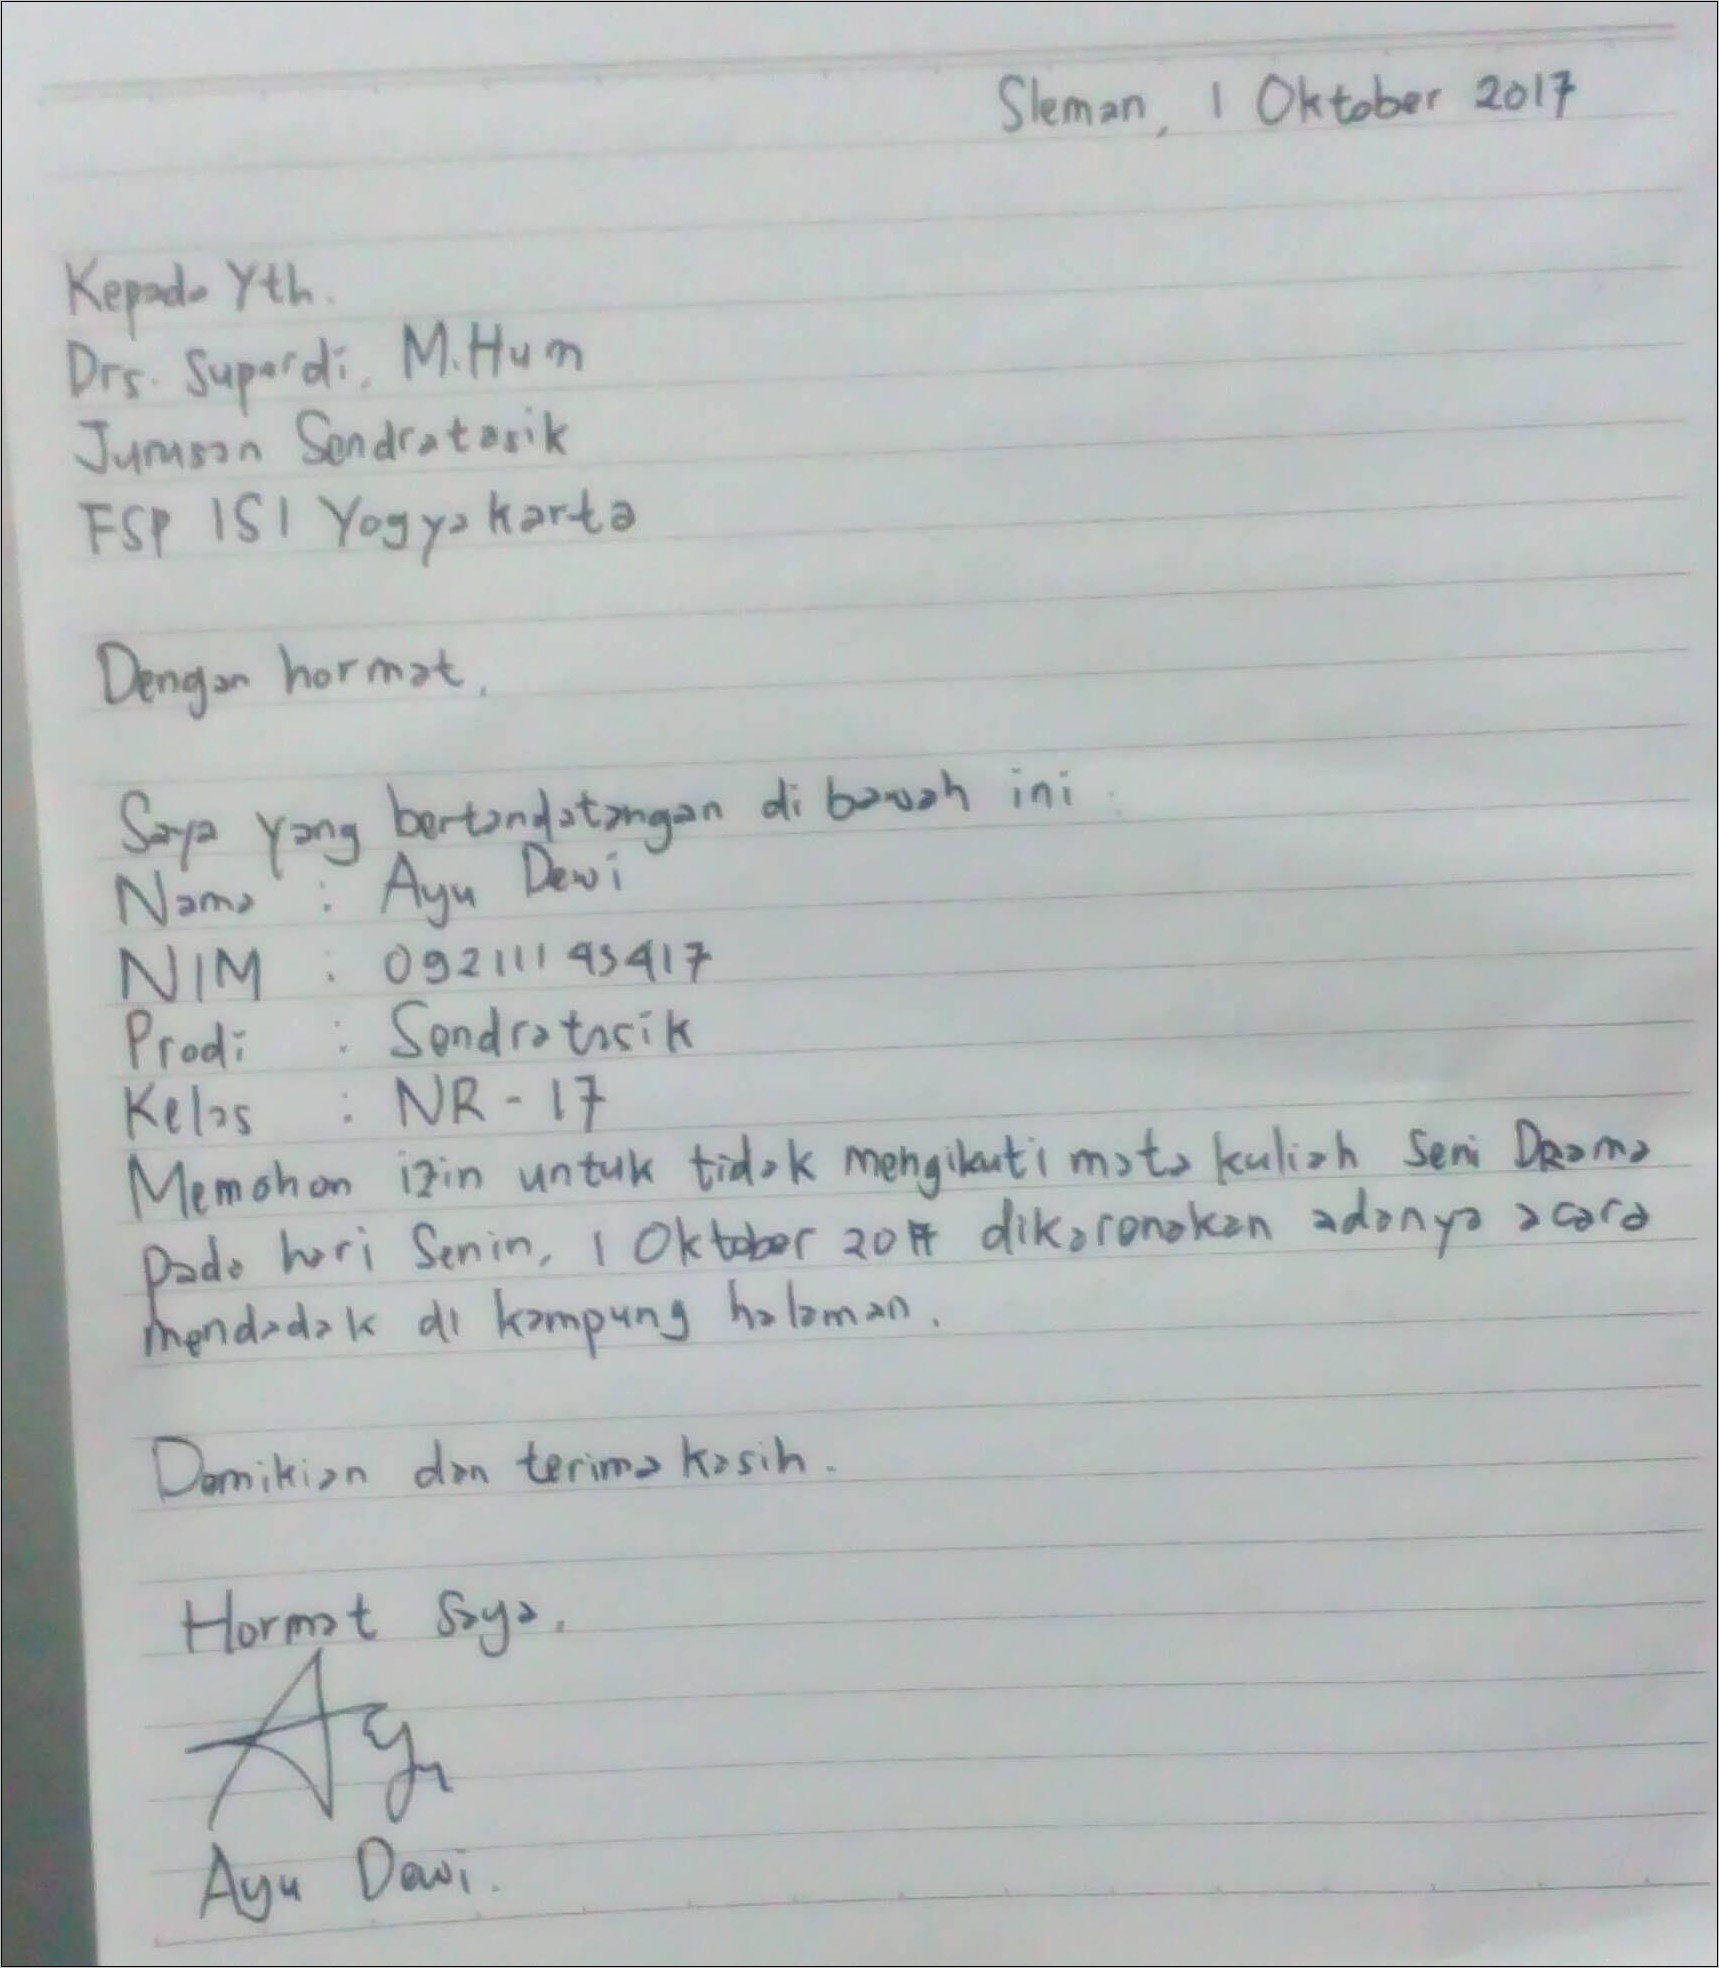 Sleman, 1 Oktober 2017
Kepada Yth.
Drs. Supardi, M.Hum
Jurusan Sendratasik
FSP ISI Yogyakarta
Dengan hormat,
Saya yang bertandatangan di bawah ini :
Nama : Ayu Dewi
NIM : 09211145417
Prodi : Sendratasik
Kelas : NR - 17
Memohon izin untuk tidak mengikuti mata kuliah Seni Drama
pada hari Senin, 1 Oktober 2017 dikarenakan adanya acara
mendadak di kampung halaman.
Demikian dan terima kasih.
Hormat saya,
Ay
Ayu Dewi.